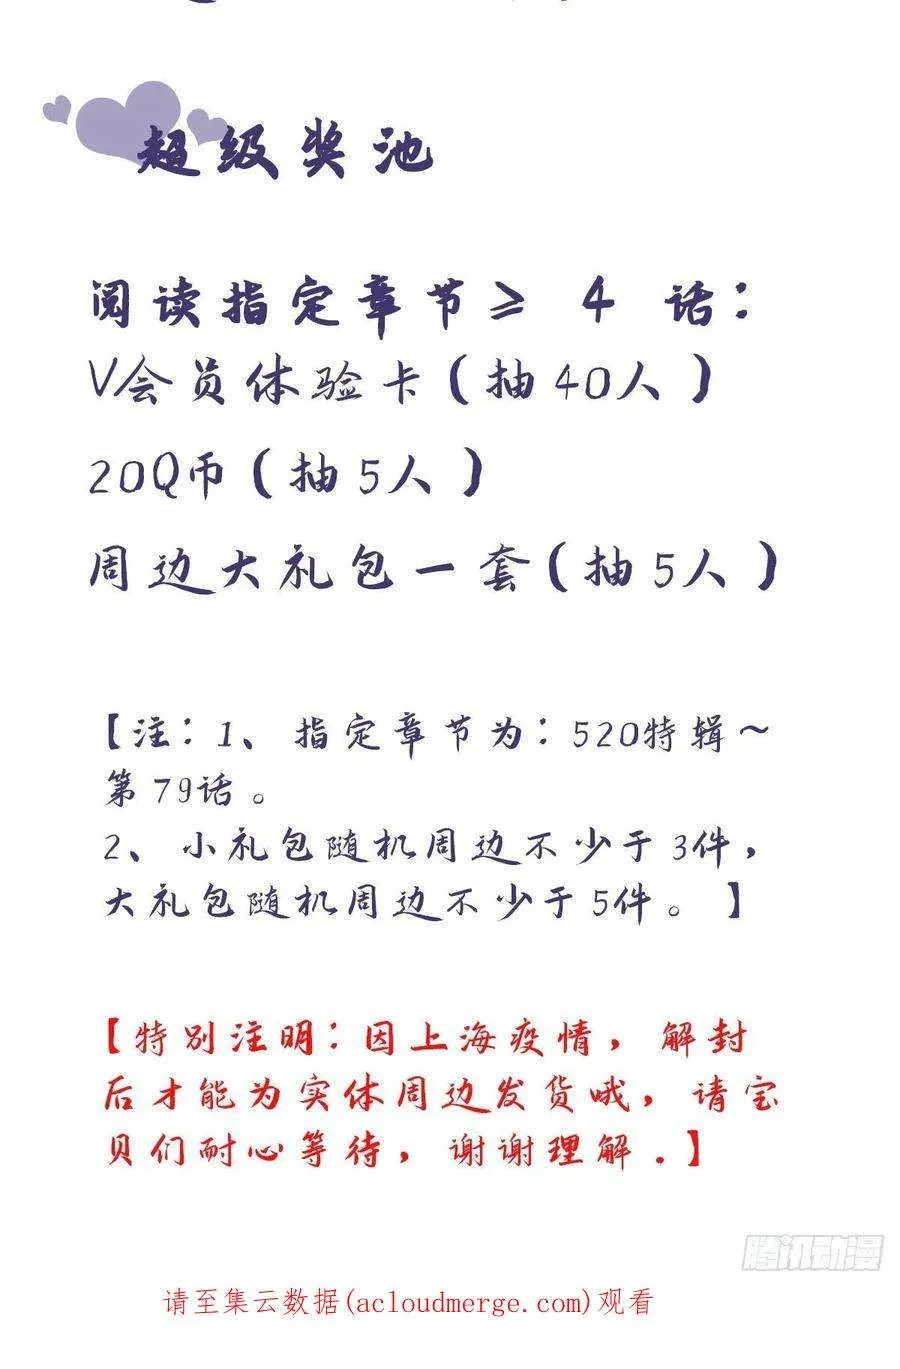 超级奖池
阅读指定章节≥ 4 话:
V会员体验卡(抽40人)
20Q币(抽5人)
周边大礼包一套(抽5人)
【注:1、指定章节为:520特辑~
第79话。
2、小礼包随机周边不少于3件,
大礼包随机周边不少于5件。】
【特别注明:因上海疫情,解封
后才能为实体周边发货哦,请宝
贝们耐心等待,谢谢理解.】
腾讯动漫
请至集云数据(acloudmerge.com)观看